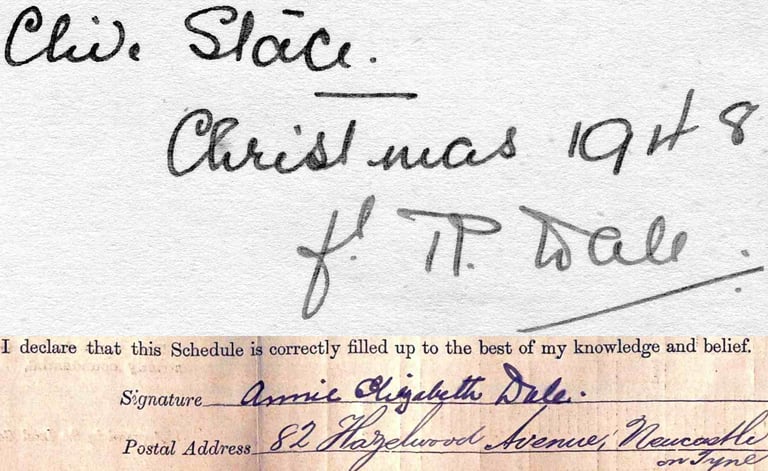 Clive Stace.
Christmas 1948
f. T. Dale
I declare that this Schedule is correctly filled up to the best of my knowledge and belief.
Signature Annie Elizabeth Dale.
Postal Address 82 Hazelwood Avenue, Newcastle
on Tyne